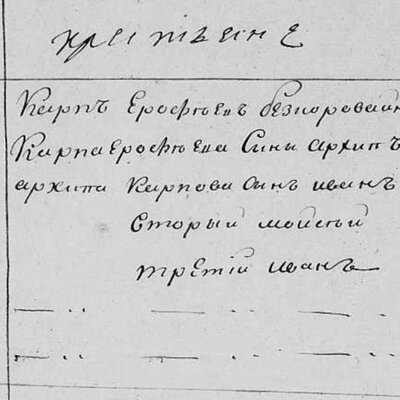 крестьяне
Карпъ Ерофѣевъ безпоровайн
Карпа Ерофѣева Сынъ архипъ
архипа Карпова сынъ иванъ
вторый мойсѣй
третій иванъ